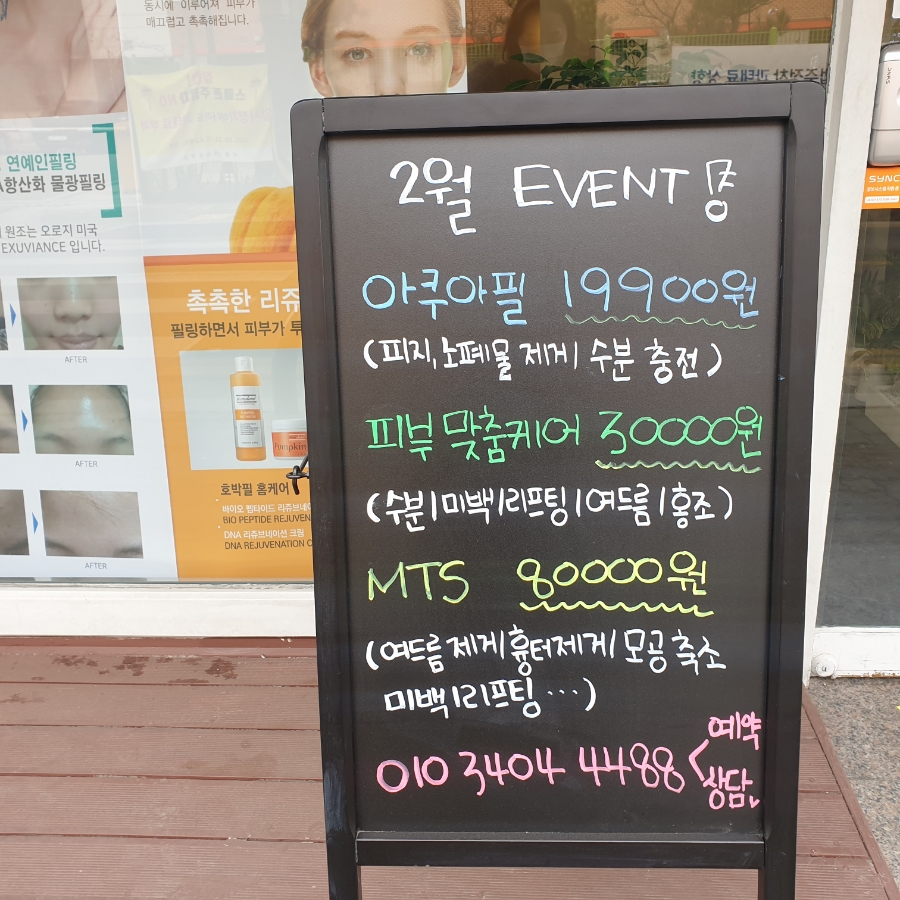 동시에 이루어져 피부가
매끄럽고 촉촉해집니다.
연예인필링
항산화 물광필링
원조는 오로지 미국
EXUVIANCE 입니다.
AFTER
AFTER
AFTER
촉촉한 리쥬
필링하면서 피부가 투
Pumpkin
호박필 홈케어
바이오 펩타이드 리쥬브네
BIO PEPTIDE REJUVEN
DNA 리쥬브네이션 크림
DNA REJUVENATION C
2월 EVENT
아쿠아필 19900원
(피지,노폐물 제거| 수분 충전)
피부 맞춤케어 30000원
(수분|미백|리프팅|여드름|홍조)
MTS 80000원
(여드름제거|흉터제거|모공축소
미백|리프팅...)
010 3404 4488 < 예약
상담
SYNC